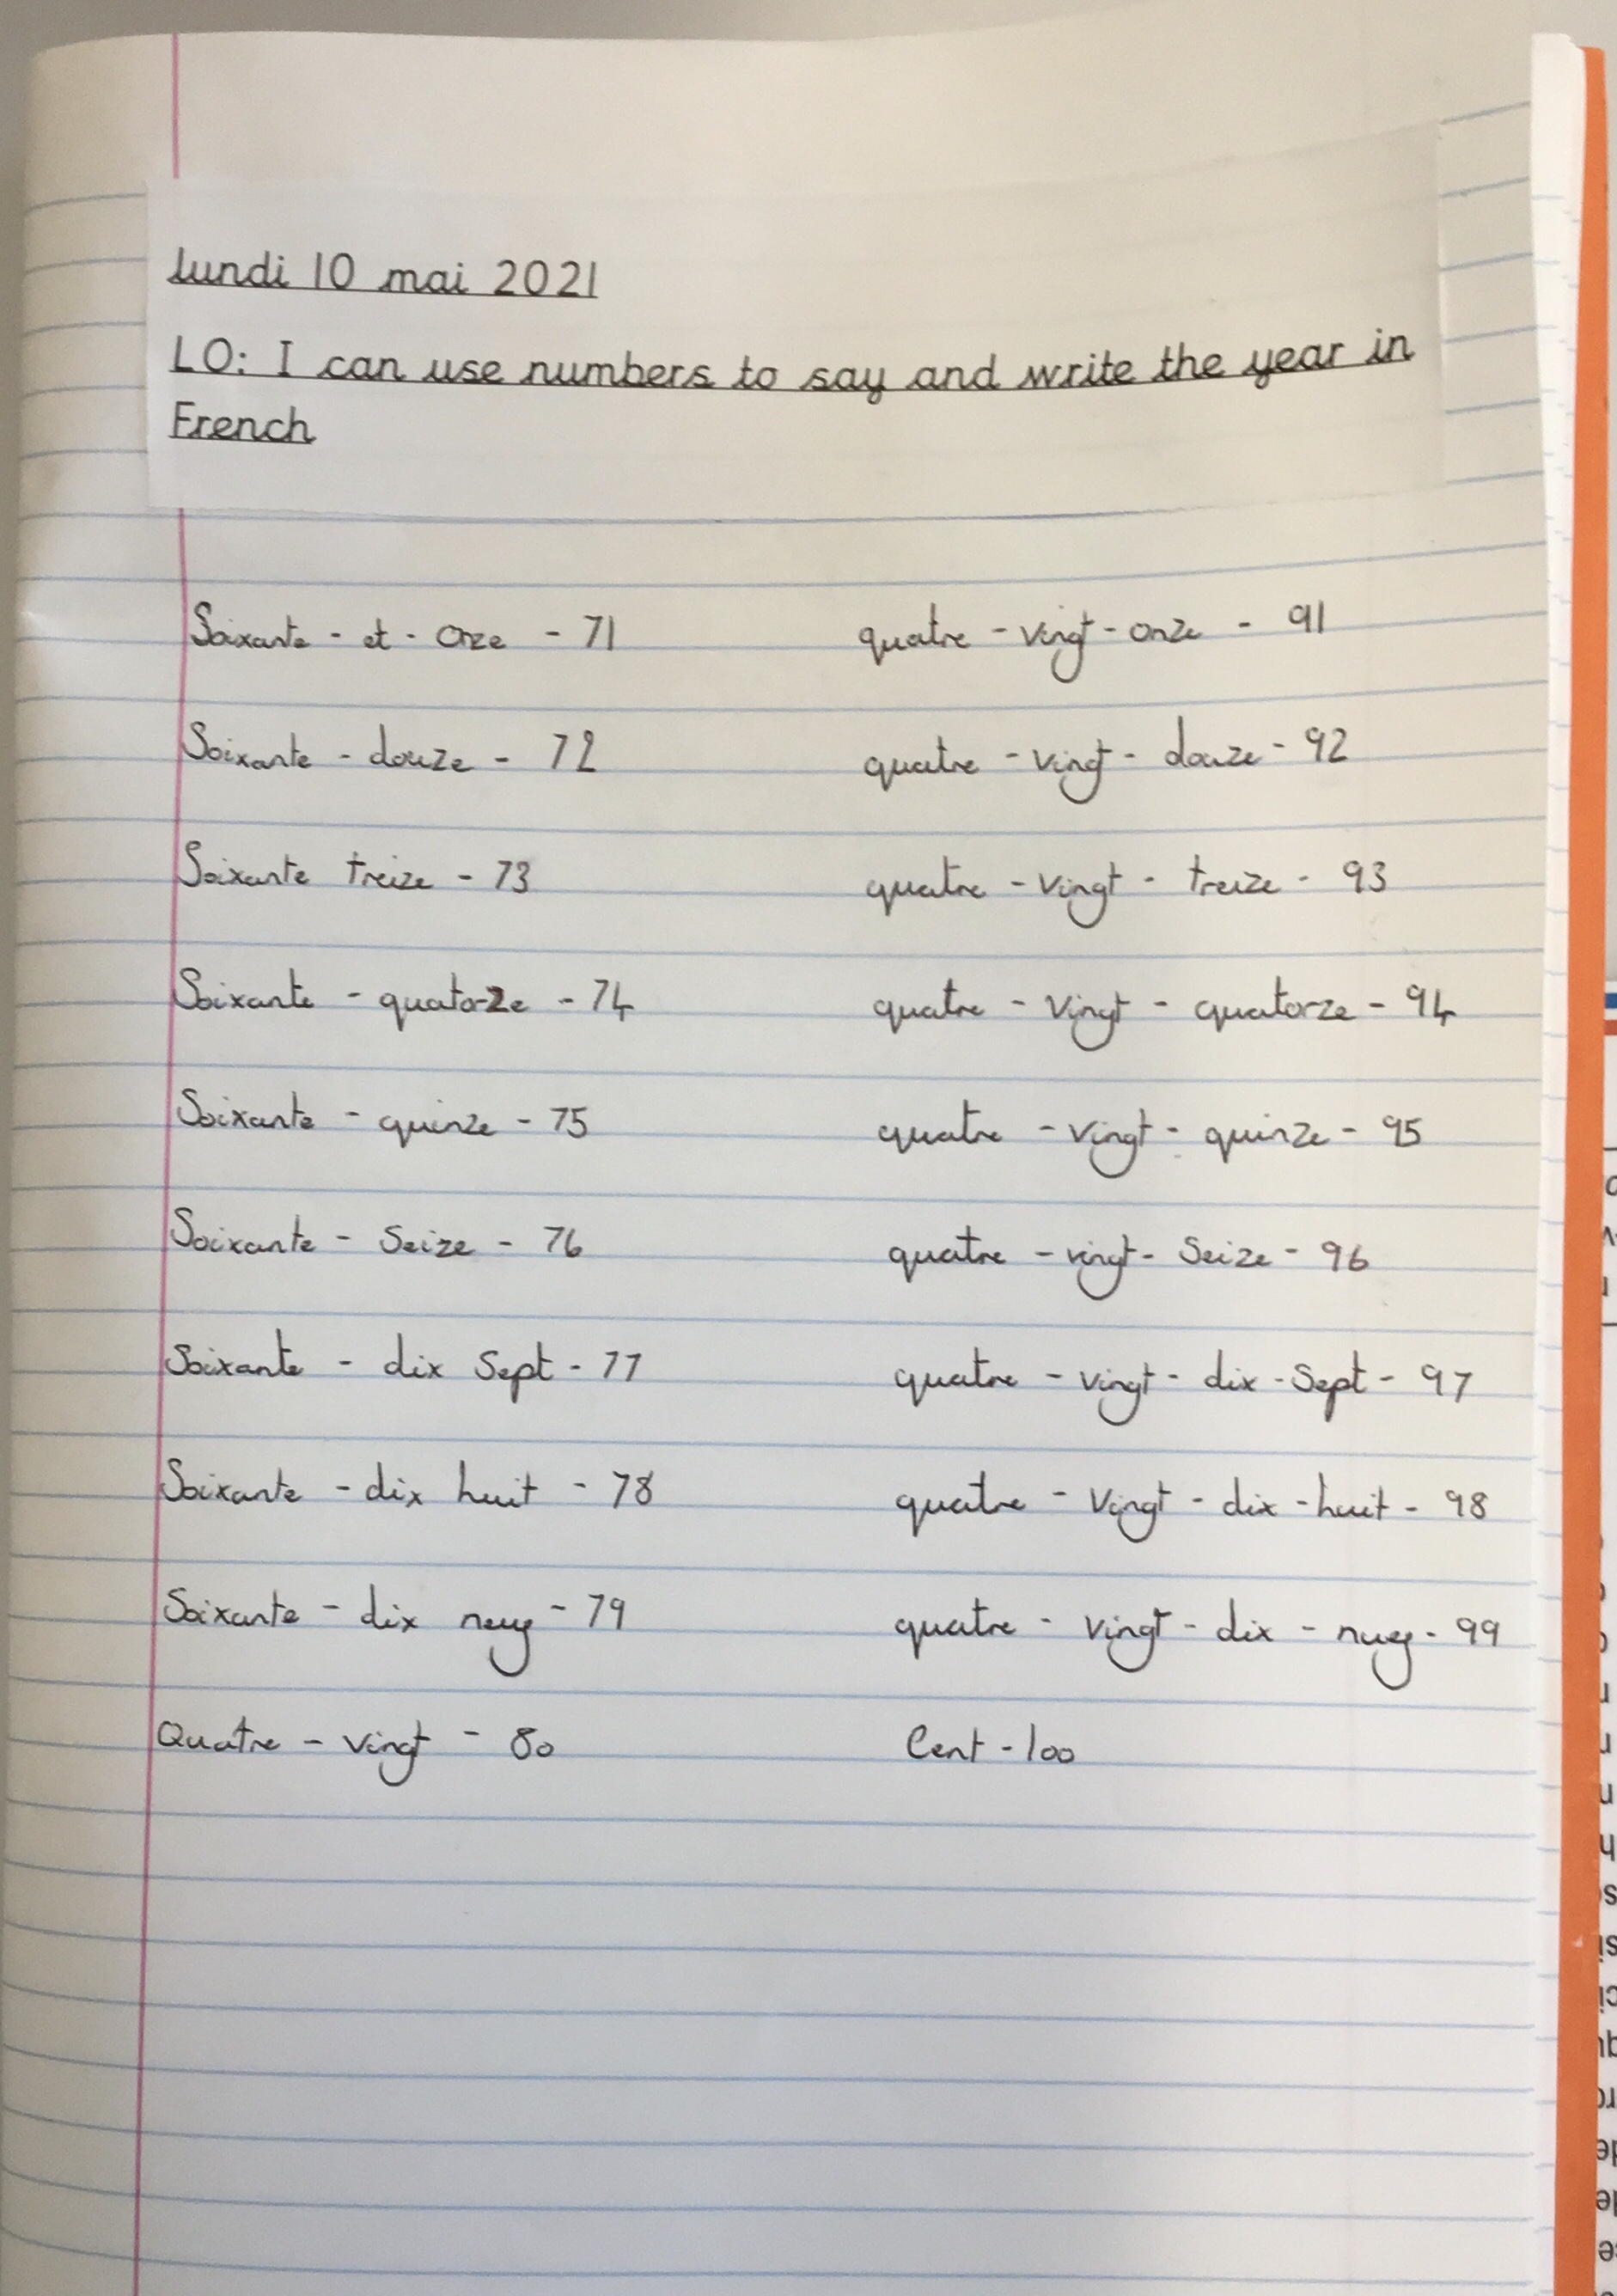 lundi 10 mai 2021
LO: I can use numbers to say and write the year in
French
Soixante - et - onze - 71
Soixante - douze - 72
Soixante treize - 73
Soixante - quatorze - 74
Soixante - quinze - 75
Soixante - Seize - 76
Soixante - dix Sept - 77
Soixante - dix huit - 78
Soixante - dix neuf - 79
Quatre - vingt - 80
quatre - vingt - onze - 91
quatre - vingt - douze - 92
quatre - vingt - treize - 93
quatre - vingt - quatorze - 94
quatre - vingt - quinze - 95
quatre - vingt - Seize - 96
quatre - vingt - dix - Sept - 97
quatre - vingt - dix - huit - 98
quatre - vingt - dix - nuef - 99
Cent - 100